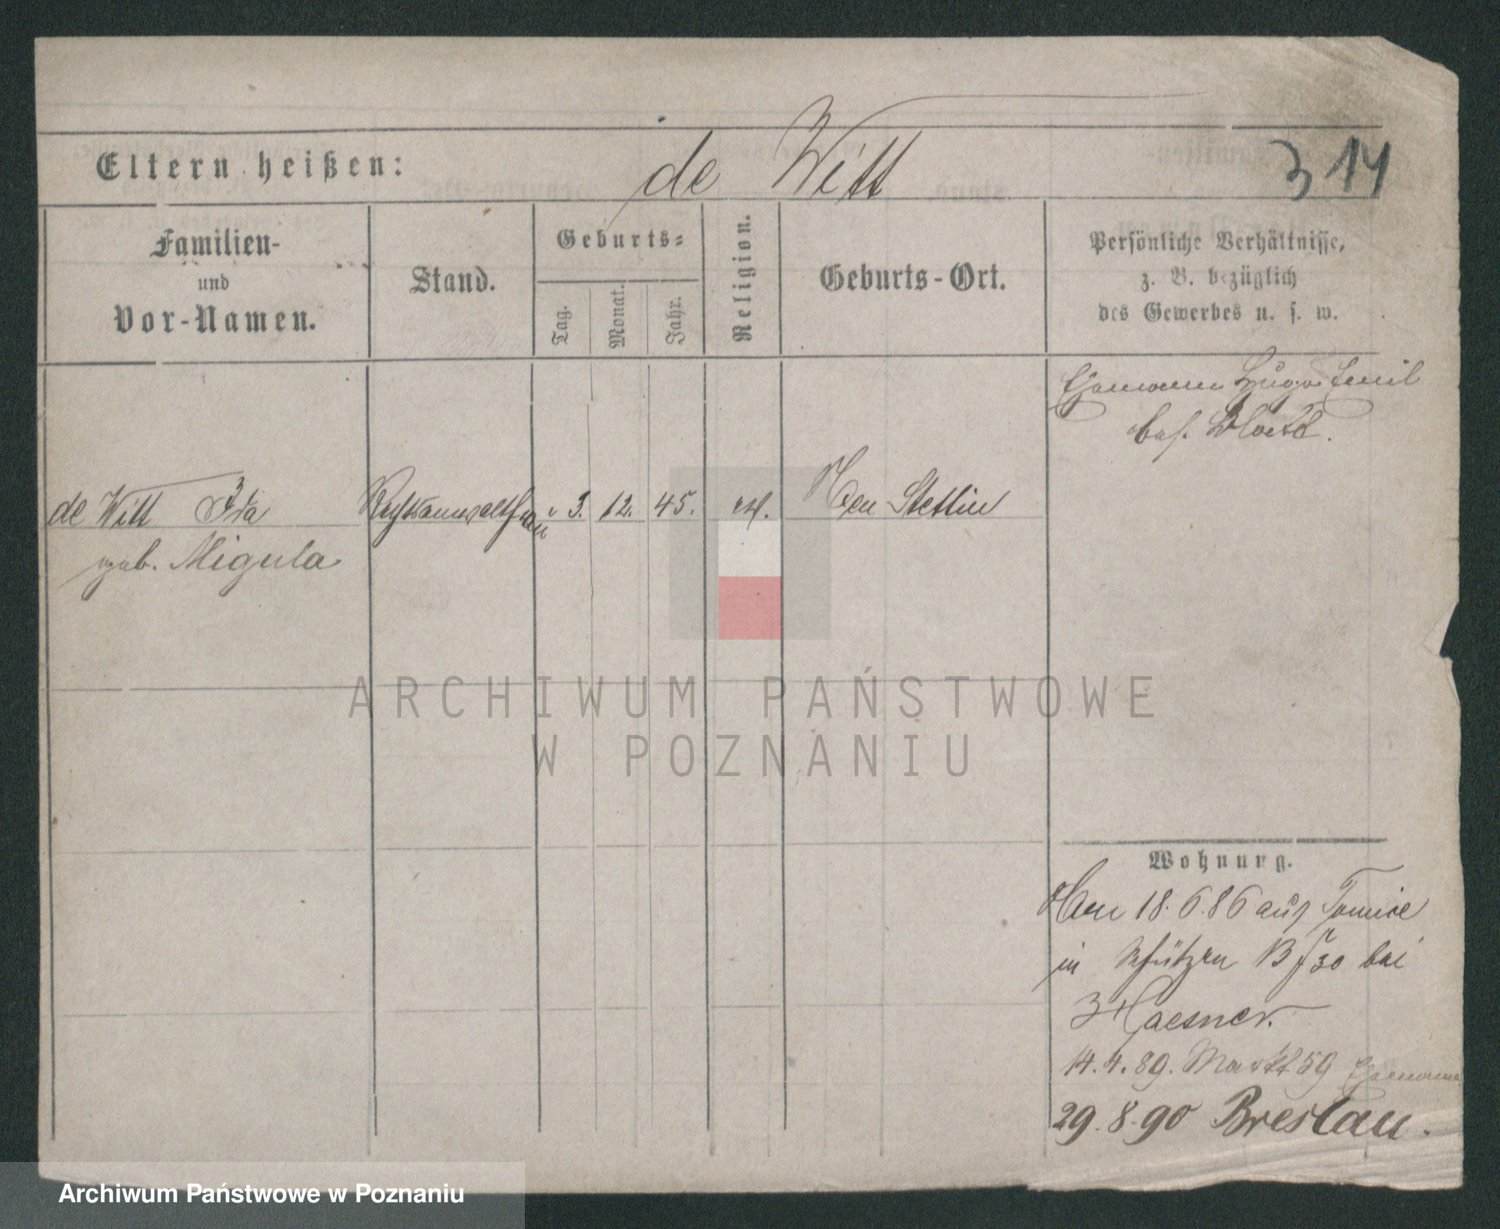 Eltern heißen: de Witt 314
Familien-
und
Vor-Namen.
Stand.
Geburts-
Tag.
Monat.
Jahr.
Religion.
Geburts-Ort.
Persönliche Verhältnisse,
z. B. bezüglich
des Gewerbes u. s. w.
Ehemann Hugo Emil
de Witt Ida Rechtsanwaltsfrau 3. 12. 45. ev. Stettin
geb. Migula
ARCHIWUM PAŃSTWOWE
W POZNANIU
Wohnung.
18.6.86 aus
in Schützen 30 bei
Haesner.
14.4.89. Markt 59 Ehemann
29.8.90 Breslau.
Archiwum Państwowe w Poznaniu